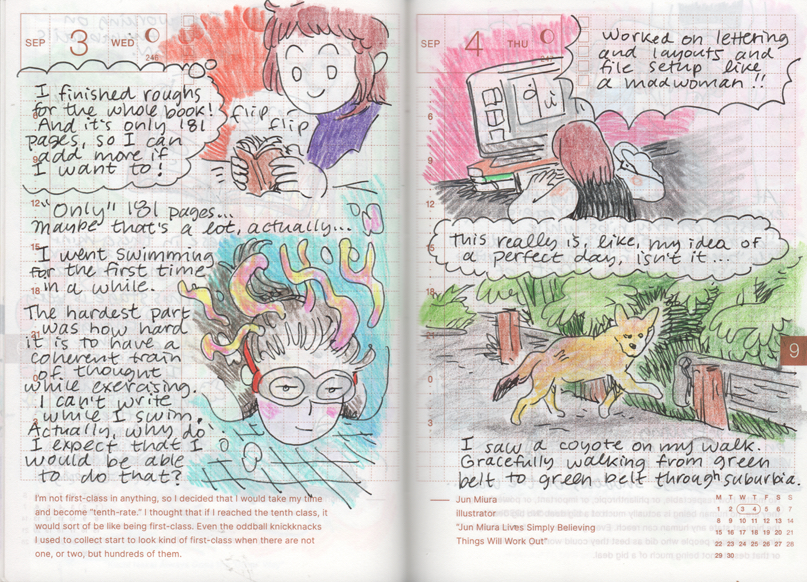 SEP 3 WED
246
I finished roughs
for the whole book!
And it's only 181
pages, so I can
add more if
I want to!
flip
flip
"Only" 181 pages...
maybe that's a lot, actually...
I went swimming
for the first time
in a while.
The hardest part
was how hard
it is to have a
coherent train
of thought
while exercising.
I can't write
while I swim.
Actually, why do
I expect that I
would be able
to do that?
I'm not first-class in anything, so I decided that I would take my time
and become "tenth-rate." I thought that if I reached the tenth class, it
would sort of be like being first-class. Even the oddball knickknacks
I used to collect start to look kind of first-class when there are not
one, or two, but hundreds of them.
SEP 4 THU
Worked on lettering
and layouts and
file setup like
a madwoman!!
This really is, like, my idea of
a perfect day, isn't it...
9
I saw a coyote on my walk.
Gracefully walking from green
belt to green belt through suburbia.
Jun Miura
Illustrator
"Jun Miura Lives Simply Believing
Things Will Work Out"
M T W T F S S
1 2 3 4 5 6 7
8 9 10 11 12 13 14
15 16 17 18 19 20 21
22 23 24 25 26 27 28
29 30